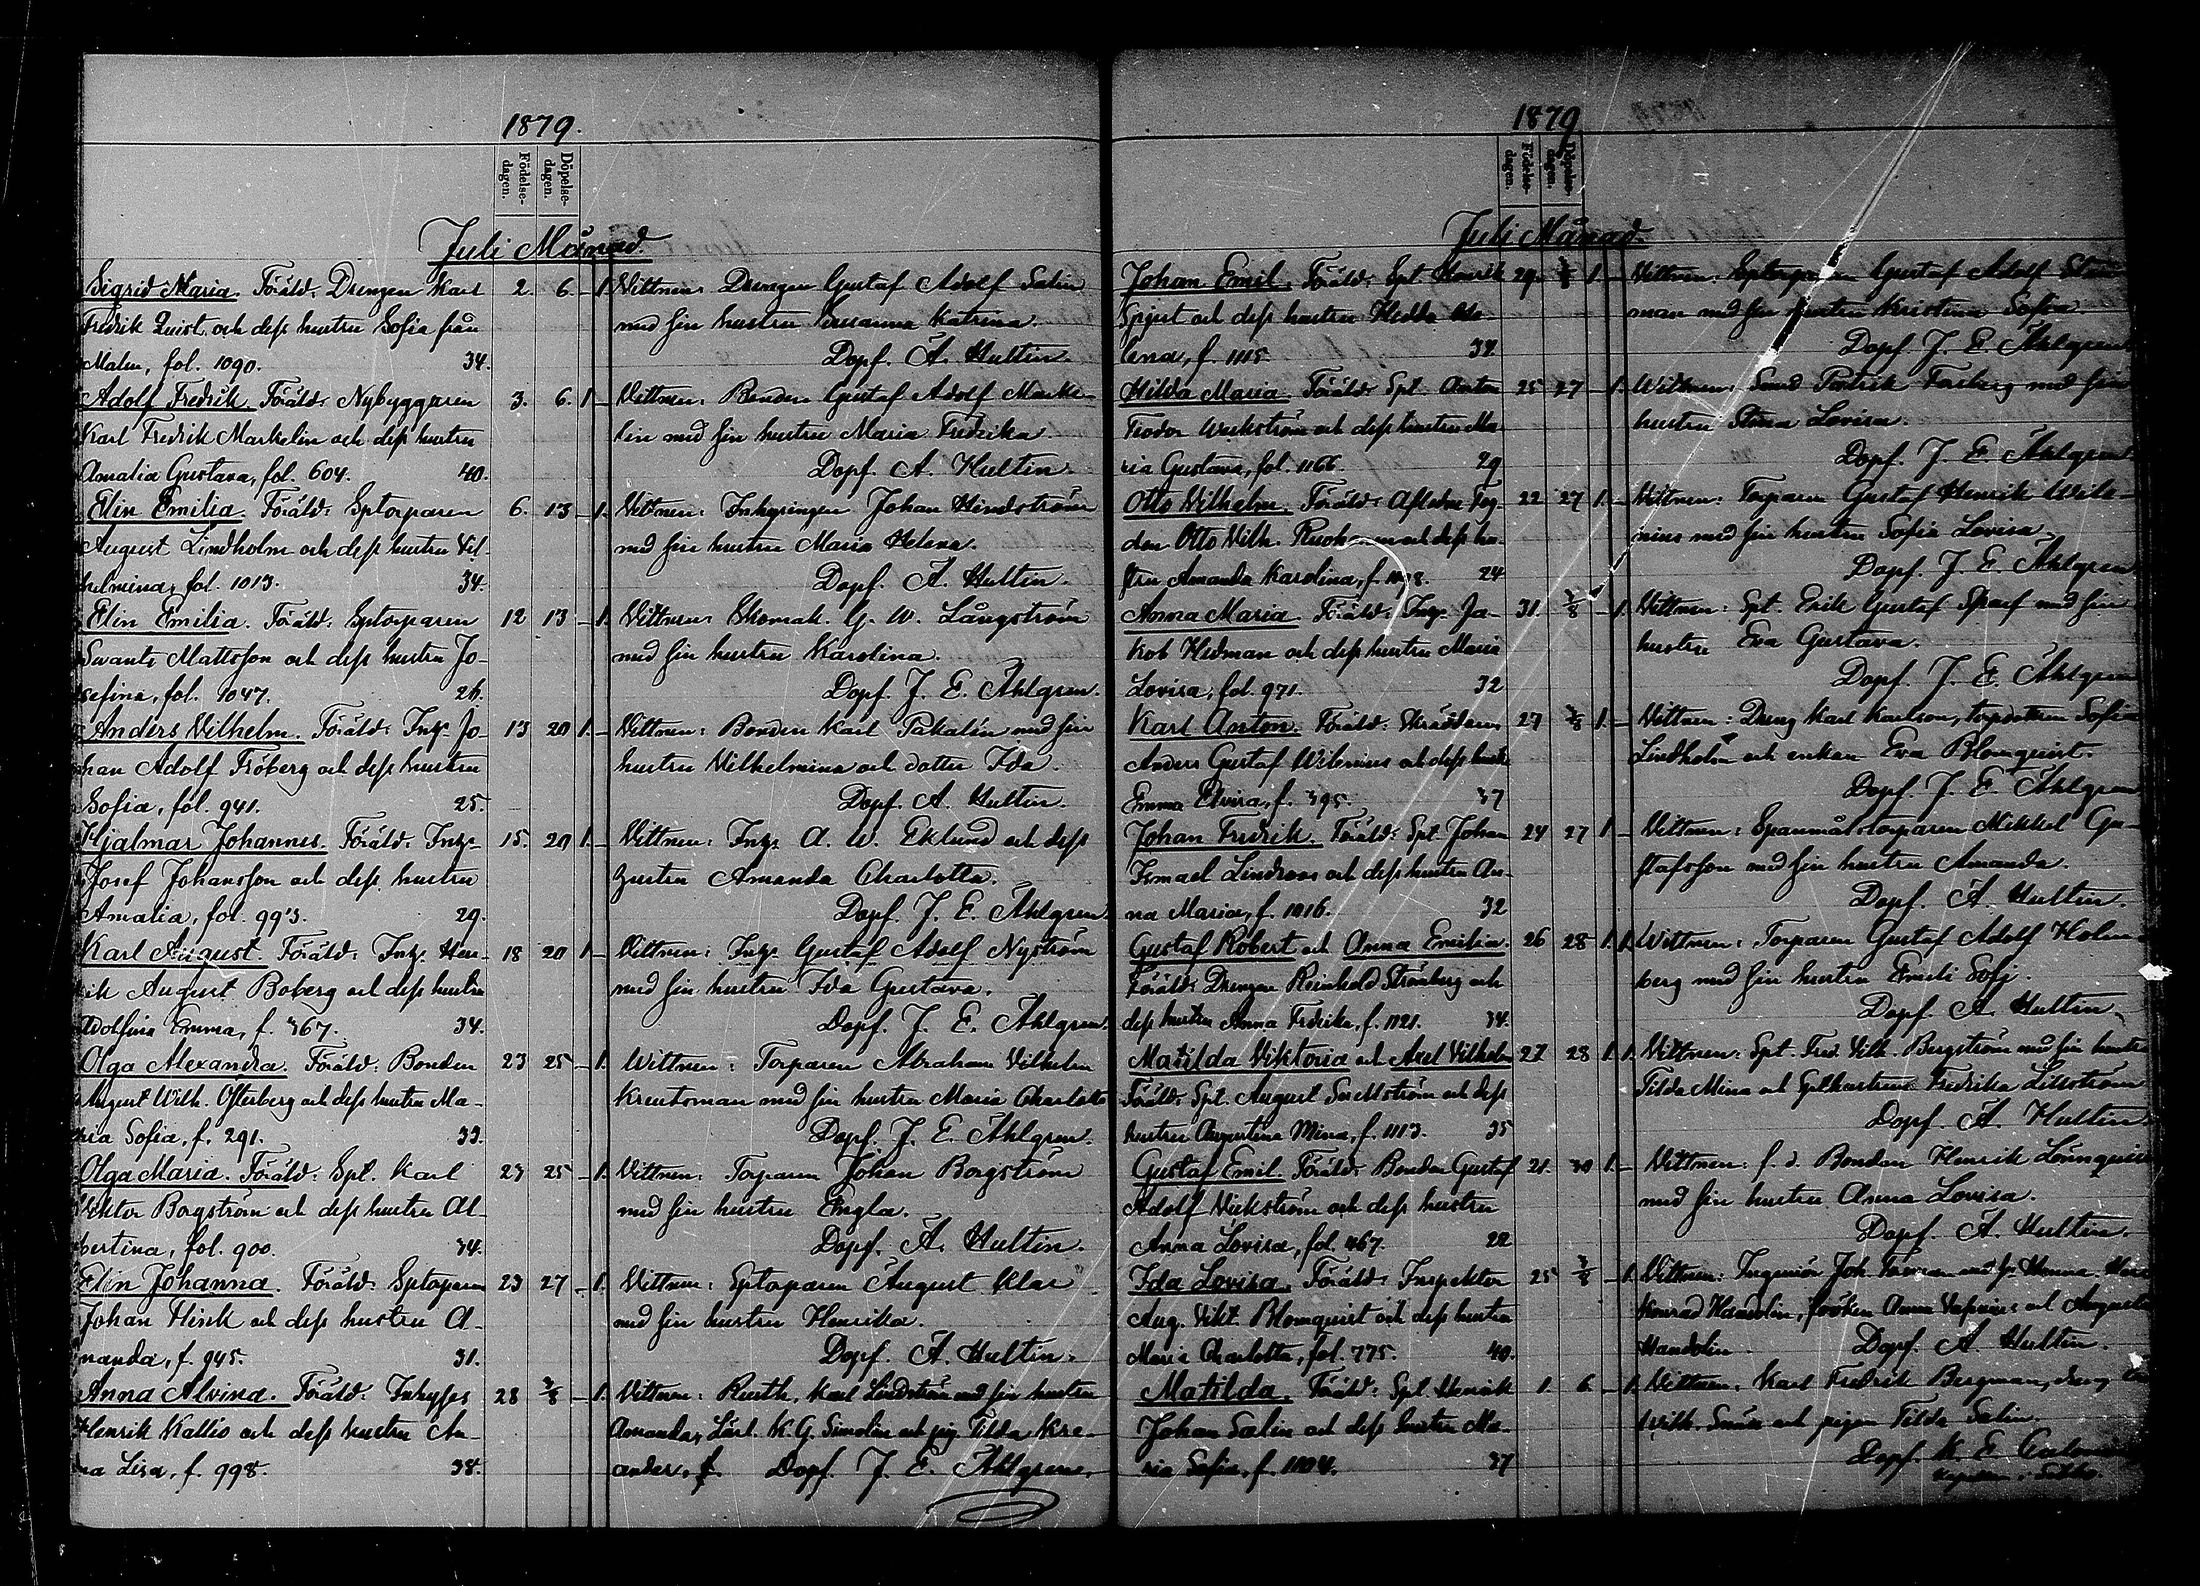 1879.
Födelse-dagen. Döpelse-dagen.
Juli Månad.
Sigrid Maria. Föräld: Drengen Karl 2. 6. — 1. Vittnen: Drengen Gustaf Adolf Salin
Fredrik Quist och dess hustru Sofia från med sin hustru Susanna Katrina.
Malm, fol. 1090. 34. Döpf. A. Hultin.
Adolf Fredrik. Föräld: Nybyggaren 3. 6. 1. — Vittnen: Bonden Gustaf Adolf Marke-
Karl Fredrik Markelin och dess hustru lin med sin hustru Maria Fredrika.
Amalia Gustava, fol. 604. 40. Döpf. A. Hultin.
Elin Emilia. Föräld: Sptorparen 6. 13 — 1. Vittnen: Inhysingen Johan Hindström
August Lindholm och dess hustru Vil- med sin hustru Maria Helena.
helmina, fol. 1013. 34. Döpf. A. Hultin.
Elin Emilia. Föräld: Sptorparen 12 13 — 1. Vittnen: Skomak. G. W. Långström
Swante Mattsson och dess hustru Jo- med sin hustru Karolina.
sefina, fol. 1047. 26. Döpf. J. E. Åhlgren.
Anders Vilhelm. Föräld: Inhys. Jo- 13 20 1. — Vittnen: Bonden Karl Pakalén med sin
han Adolf Fröberg och dess hustru hustru Vilhelmina och dotter Ida.
Sofia, fol. 941. 25. Döpf. A. Hultin.
Hjalmar Johannes. Föräld: Inhys. 15. 20 1. — Vittnen: Inhys. A. W. Eklund och dess
Josef Johansson och dess hustru hustru Amanda Charlotta.
Amalia, fol. 993. 29. Döpf. J. E. Åhlgren.
Karl August. Föräld: Inhys. Hen- 18 20 1. — Vittnen: Inhys. Gustaf Adolf Nyström
rik August Boberg och dess hustru med sin hustru Ida Gustava.
Adolfina Emma, f. 367. 34. Döpf. J. E. Åhlgren.
Olga Alexandra. Föräld: Bonden 23 25 — 1. Wittnen: Torparen Abraham Vilhelm
August Wilh. Österberg och dess hustru Ma- Kreutsman med sin hustru Maria Charlotta
ria Sofia, f. 291. 33. Döpf. J. E. Åhlgren.
Olga Maria. Föräld: Spt. Karl 23 25 — 1. Vittnen: Torparen Johan Borgström
Viktor Borgström och dess hustru Al- med sin hustru Engla.
bertina, fol. 900. 34. Döpf. A. Hultin.
Elin Johanna. Föräld: Sptorparen 23 27 — 1. Vittnen: Sptorparen August Klar
Johan Hirsk och dess hustru A- med sin hustru Henrika.
manda, f. 945. 31. Döpf. A. Hultin.
Anna Alvina. Föräld: Inhyses 28 3/8 — 1. Vittnen: Rusth. Karl Lindström med sin hustru
Henrik Kallio och dess hustru An- Amanda, Lärl. K. G. Simolin och pig. Tilda Kre-
na Lisa, f. 998. 38. ander. Döpf. J. E. Åhlgren.
1879
Födelse-dagen. Döpelse-dagen.
Juli Månad.
Johan Emil. Föräld: Spt. Henrik 29. 3/8 1. — Vittnen: Sptorparen Gustaf Adolf
Spjut och dess hustru Hedda He- man med sin hustru Kristina Sofia
lena, f. 1115. 32 Döpf. J. E. Åhlgren
Hilda Maria. Föräld: Spt. Anton 25 27 — 1. Wittnen: Smed Fredrik Forsberg med sin
Teodor Weckström och dess hustru Ma- hustru Stina Lovisa.
ria Gustava, fol. 1166. 29 Döpf. J. E. Åhlgren
Otto Vilhelm. Föräld: Aflidne 22 27 1. — Vittnen: Torparen Gustaf Henrik Wile-
Otto Wilh. och dess hu- nius med sin hustru Sofia Lovisa.
stru Amanda Karolina, f. 24 Döpf. J. E. Åhlgren
Anna Maria. Föräld: Inhys. Ja- 31. 3/8 — 1. Vittnen: Spt. Erik Gustaf Sparf med sin
kob Hedman och dess hustru Maria hustru Eva Gustava.
Lovisa, fol. 971. 32 Döpf. J. E. Åhlgren
Karl Anton. Föräld: Skräddaren 27 3/8 1. — Vittnen: Dreng Karl Karlson, torpdottern Sofia
Anders Gustaf Wilenius och dess hustru Lindholm och enkan Eva Blomquist.
Emma Elvira, f. 395. 37 Döpf. J. E. Åhlgren
Johan Fredrik. Föräld: Spt. Johan 24 27 1. — Vittnen: Spanmålstorparen Mikkel Gu-
Ismael Lindroos och dess hustru An- stafsson med sin hustru Amanda.
na Maria, f. 1016. 32 Döpf. A. Hultin.
Gustaf Robert och Anna Emilia. 26 28 1. 1. Vittnen: Torparen Gustaf Adolf Holm-
Föräld: Drengen Reinhold Strömberg och berg med sin hustru Emeli Sofi.
dess hustru Anna Fredrika, f. 1121. 34. Döpf. A. Hultin.
Matilda Viktoria och Axel Vilhelm 27 28 1. 1. Vittnen: Spt. Fred. Vilh. Bergström med sin hustru
Föräld: Spt. August och dess Tilda Mina och Spthustrun Fredrika
hustru Augustina Mina, f. 1113. 35 Döpf. A. Hultin.
Gustaf Emil. Föräld: Bonden Gustaf 21. 30 1. — Vittnen: f. d. Bonden Henrik Lönnquist
Adolf Vickström och dess hustru med sin hustru Anna Lovisa.
Anna Lovisa, fol. 467. 22 Döpf. A. Hultin.
Ida Lovisa. Föräld: Inspektor 25 3/8 — 1. Vittnen: Ingeniör Joh.
Aug. Vikt. Blomquist och dess hustru Konrad Handolin, fröken Anna och Augusta
Maria Charlotta, fol. 775. 40. Handolin. Döpf. A. Hultin.
Matilda. Föräld: Spt. Henrik 1. 6. — 1. Vittnen: Karl Fredrik Bergman, dreng
Johan Salin och dess hustru Ma- Wilh. och pigan Tilda Salin.
ria Sofia, f. 1104. 37 Döpf. K. E.